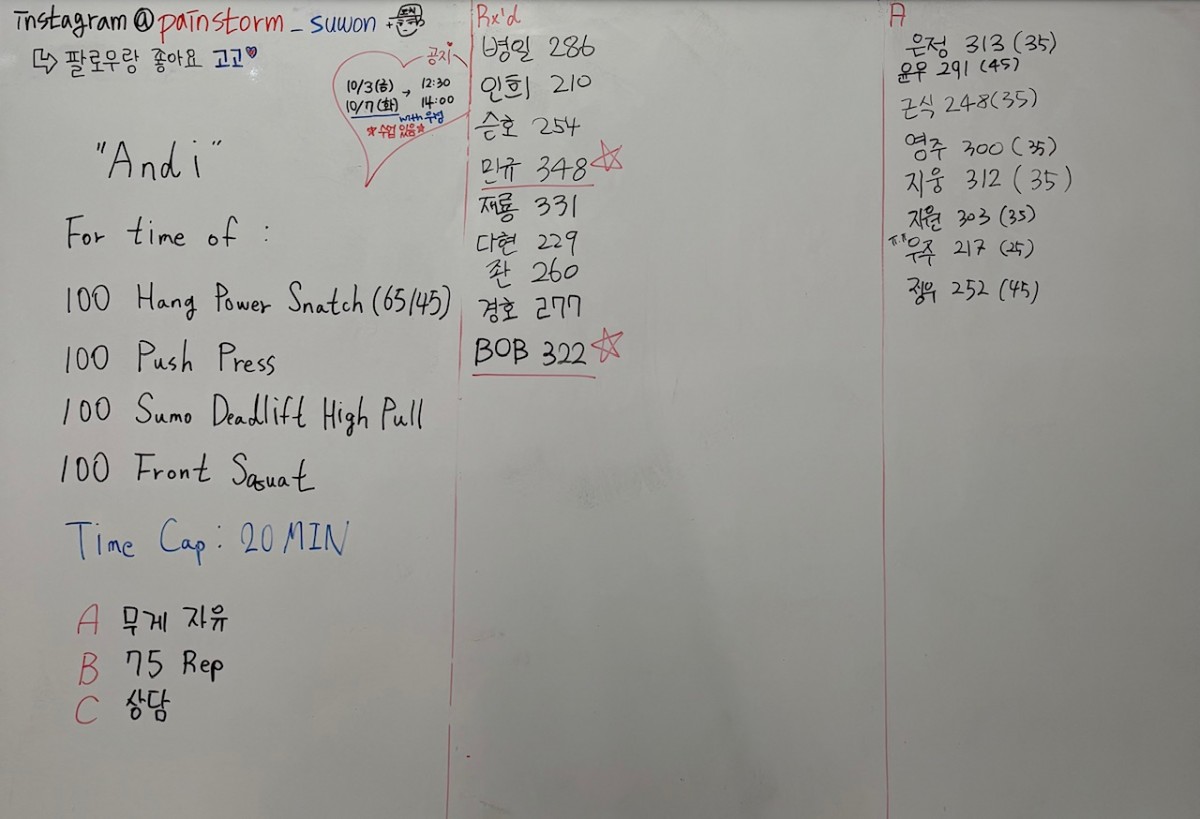 instagram@painstorm_suwon +
팔로우랑 좋아요 고고
공지
10/3(금) → 12:30
10/7(화) 14:00
with 우형
수업 있음
"Andi"
For time of :
100 Hang Power Snatch (65/45)
100 Push Press
100 Sumo Deadlift High Pull
100 Front Sqsuat
Time Cap: 20 MIN
A 무게 자유
B 75 Rep
C 상담
Rx'd
병일 286
인희 210
승호 254
민규 348
재룡 331
다현 229
좐 260
경호 277
BOB 322
A
은정 313 (35)
윤우 291 (45)
근식 248(35)
영주 300 (35)
지웅 312 (35)
지원 303 (35)
우주 217 (25)
정우 252 (45)